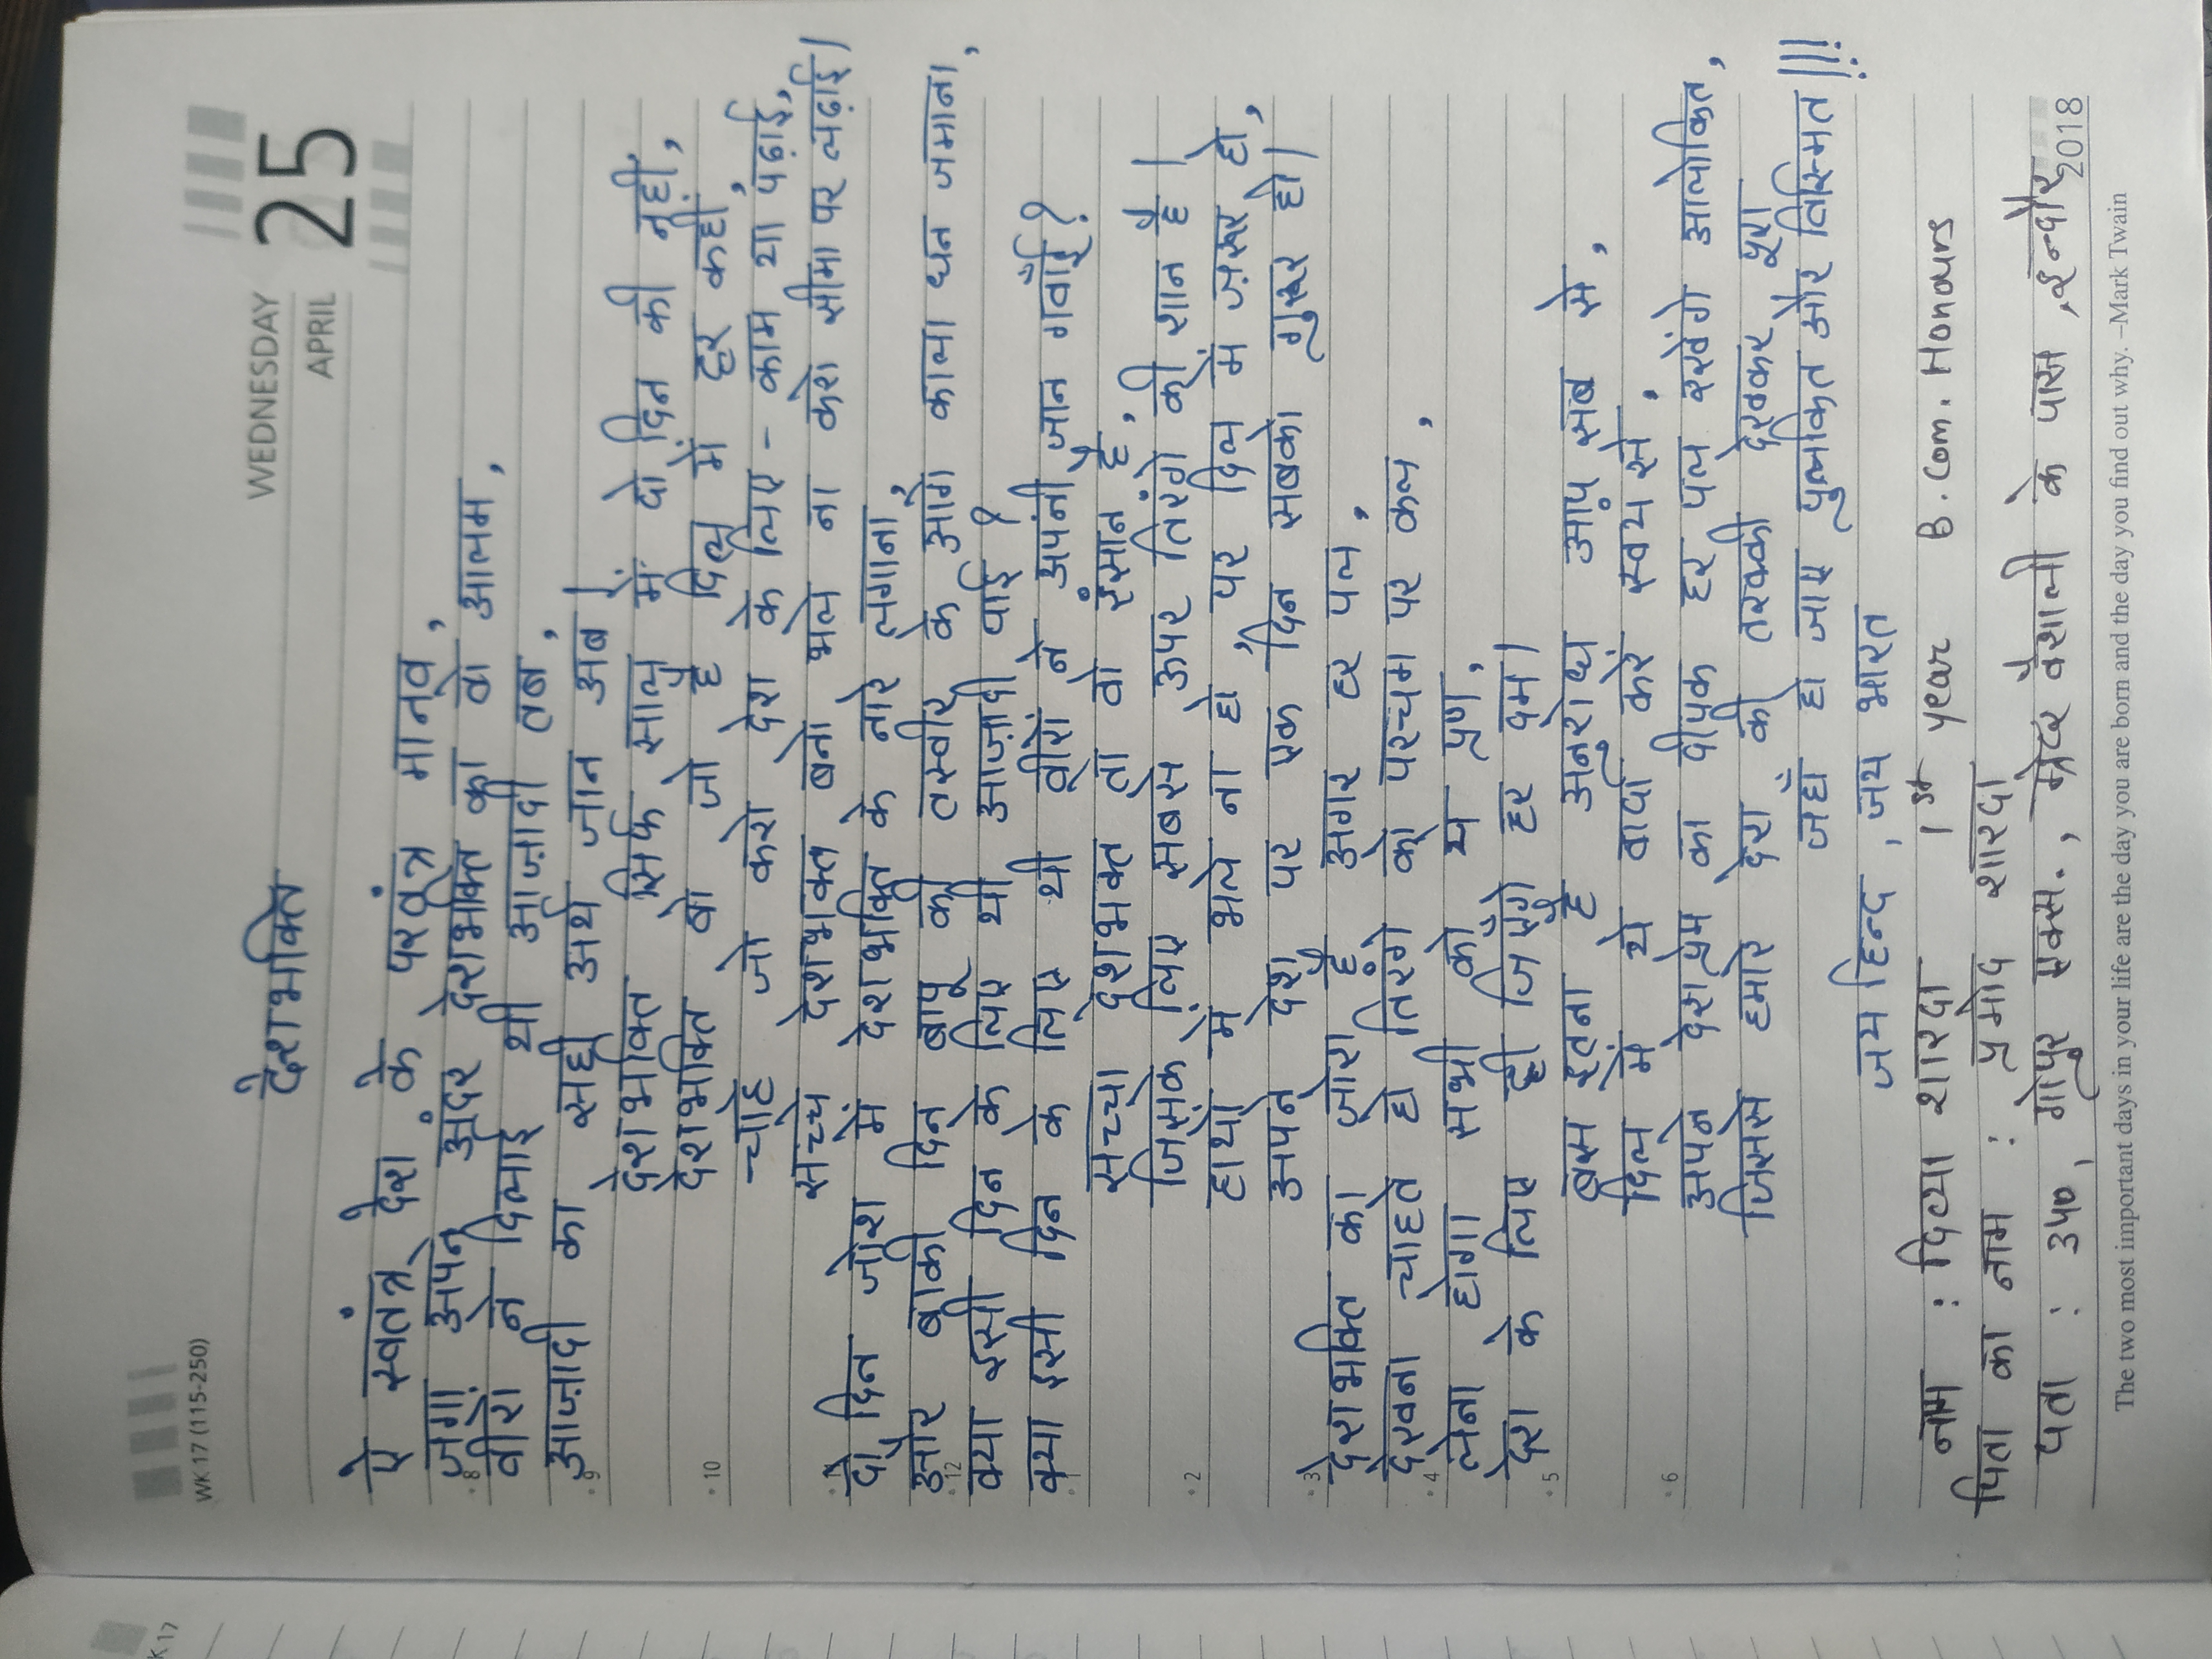 WK 17 (115-250)
WEDNESDAY
APRIL
25
देशभक्ति
ऐ स्वतंत्र देश के परतंत्र मानव,
जगा अपने अंदर देशभक्ति का वो आलम,
वीरों ने दिलाई थी आज़ादी तब,
आज़ादी का सही अर्थ जान अब।
देशभक्ति सिर्फ साल में दो दिन की नहीं,
देशभक्ति वो जो है दिल में हर कहीं,
चाहे जो करो देश के लिए - काम या पढ़ाई,
सच्चे देशभक्त बनो भले ना करो सीमा पर लढ़ाई।
दो दिन जोश में देशभक्ति के नारे लगाना,
और बाकी दिन बापू की तस्वीर के आगे काला धन जमाना,
क्या इसी दिन के लिए थी आज़ादी पाई?
क्या इसी दिन के लिए थी वीरों ने अपनी जान गवाँई?
सच्चा देशभक्त तो वो इंसान है,
जिसके लिए सबसे ऊपर तिरंगे की शान है।
हाथों में भले ना हो, पर दिल में ज़रूर हो,
अपने देश पर एक दिन सबको गुरूर हो।
देशभक्ति का ज़ोश है अगर हर पल,
देखना चाहते हो तिरंगे को परचम पर कल,
लेना होगा सभी को ये प्रण,
देश के लिए ही जिएँगे हर दम।
बस इतना है अनुरोध आप सब से,
दिल में ये वादा करें स्वयं से,
अपने देशप्रेम का दीपक हर पल रखेंगे आलोकित,
जिससे हमारे देश की तरक्की देखकर पूरा
जहाँ हो जाए पुलकित और विस्मित!!!
जय हिन्द, जय भारत
नाम : दिव्या शारदा 1st year B.Com. Honours
पिता का नाम : प्रमोद शारदा
पता : 340, गोपुर एक्स., ग्रेटर वैशाली के पास, इन्दौर
2018
The two most important days in your life are the day you are born and the day you find out why. –Mark Twain
K 17
8
9
10
12
1
2
3
4
5
6